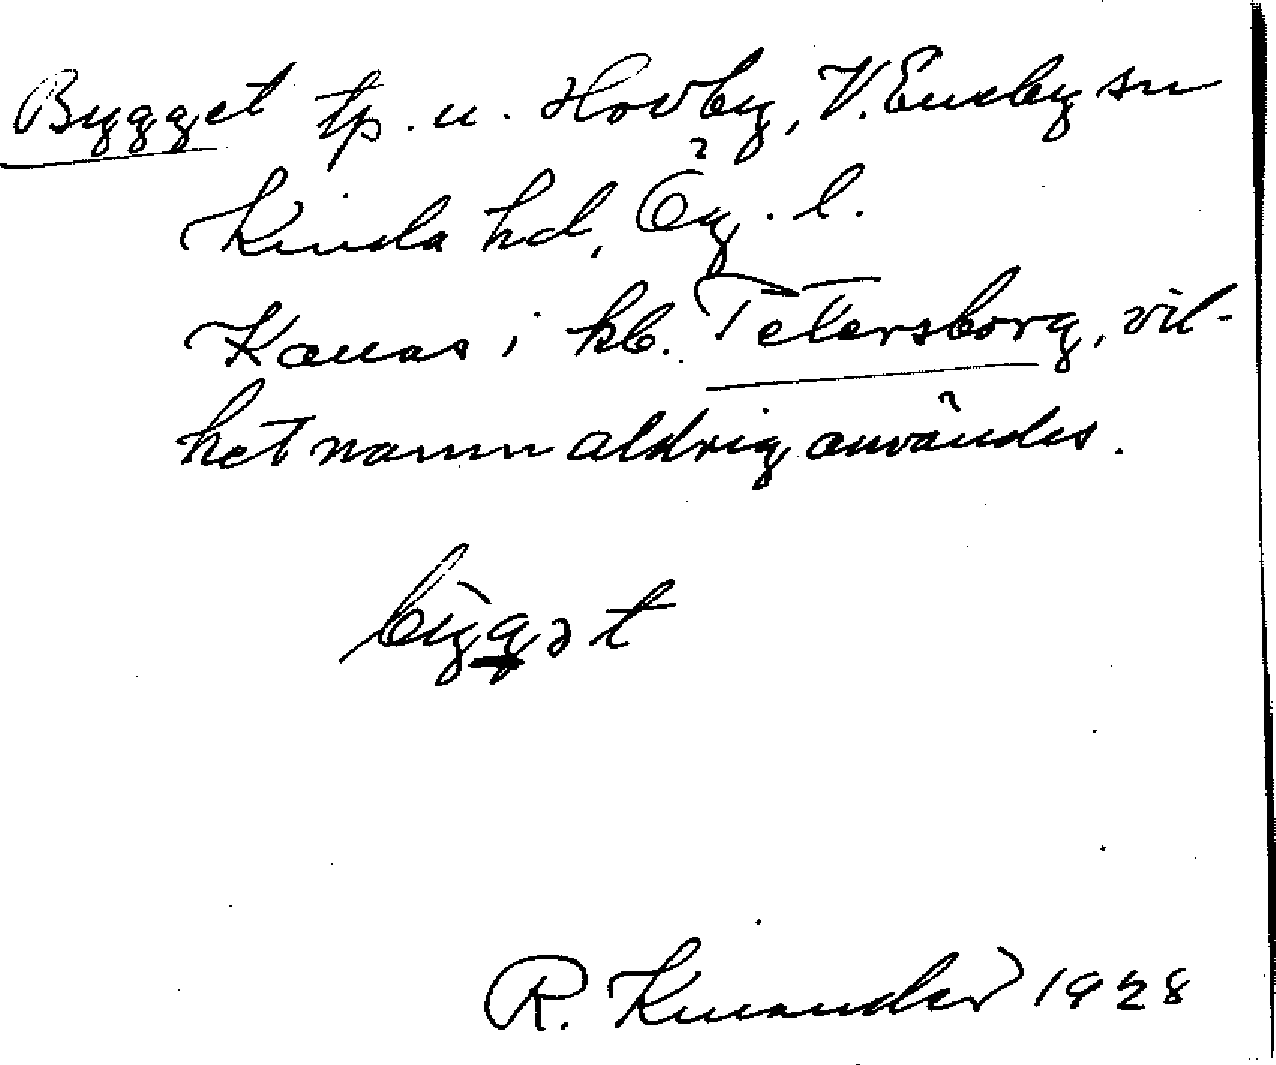 Bygget tp. u. Hovby, V. Eneby sn
Kinda hd, Ög. l.
Kallas i kb. Petersborg, vil-
ket namn aldrig användes.
bỳggət
R. Kinander 1928